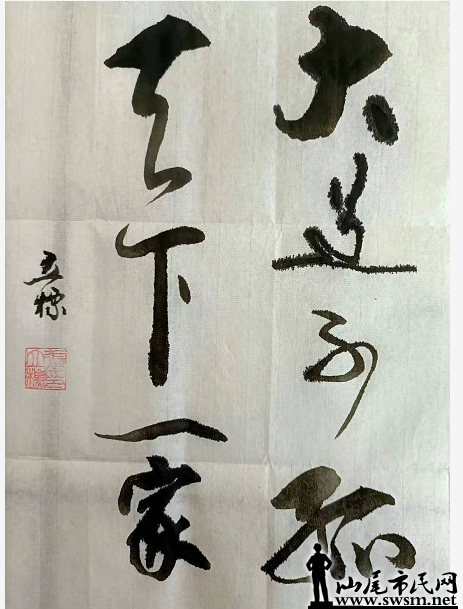 大道不孤
天下一家
汕尾市民网
www.swsm.net